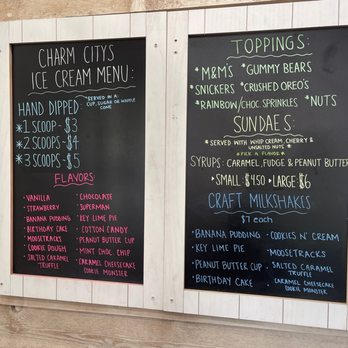 CHARM CITYS
ICE CREAM MENU:
HAND DIPPED:
*SERVED IN A
CUP, SUGAR OR WAFFLE
CONE
*1 SCOOP-$3
*2 SCOOPS-$4
*3 SCOOPS-$5
FLAVORS:
• VANILLA
• STRAWBERRY
• BANANA PUDDING
• BIRTHDAY CAKE
• MOOSETRACKS
• COOKIE DOUGH
• SALTED CARAMEL
TRUFFLE
• CHOCOLATE
• SUPERMAN
• KEY LIME PIE
• COTTON CANDY
• PEANUT BUTTER CUP
• MINT CHOC CHIP
• CARAMEL CHEESECAKE
COOKIE MONSTER
TOPPINGS:
*M&M'S *GUMMY BEARS
*SNICKERS *CRUSHED OREO'S
*RAINBOW/CHOC SPRINKLES *NUTS
SUNDAES:
*SERVED WITH WHIP CREAM, CHERRY &
UNSALTED NUTS*
*PICK A FLAVOR*
SYRUPS: CARAMEL, FUDGE & PEANUT BUTTER
►SMALL: $4.50 ►LARGE: $6
CRAFT MILKSHAKES
$7 each
• BANANA PUDDING
• KEY LIME PIE
• PEANUT BUTTER CUP
• BIRTHDAY CAKE
• COOKIES N' CREAM
• MOOSETRACKS
• SALTED CARAMEL
TRUFFLE
• CARAMEL CHEESECAKE
COOKIE MONSTER